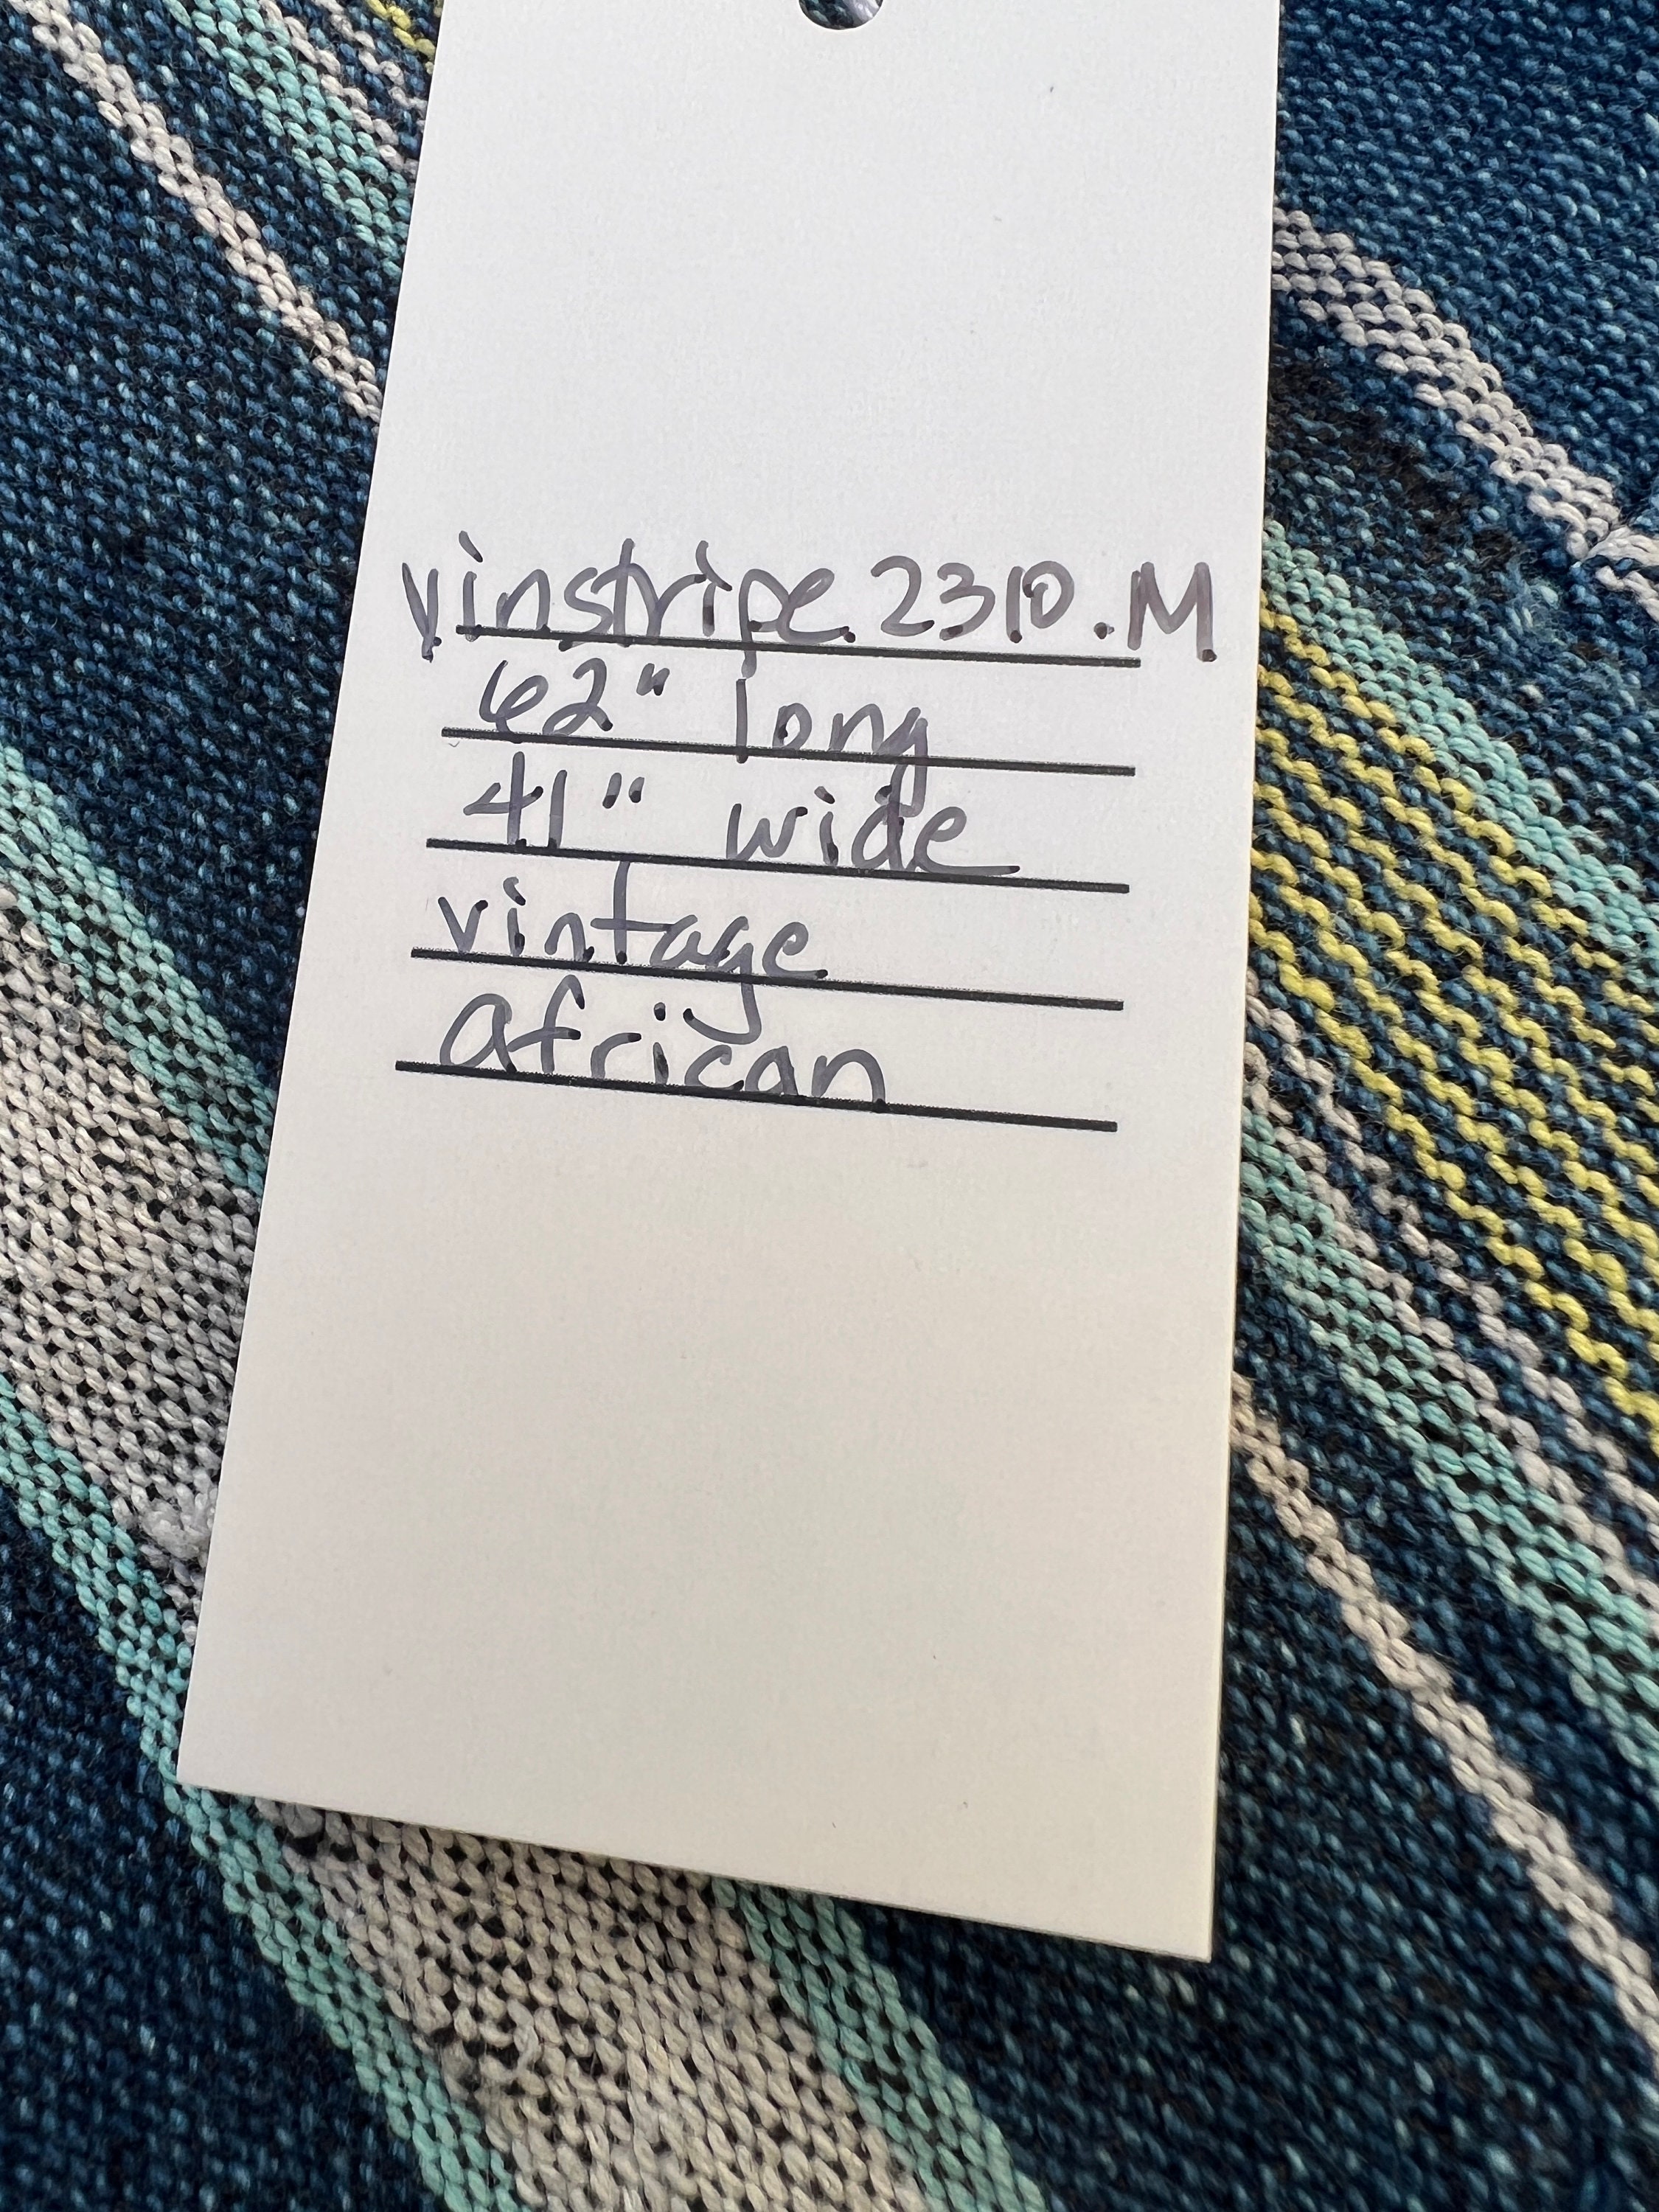 vinstripe.2310.M
62" long
41" wide
vintage
african